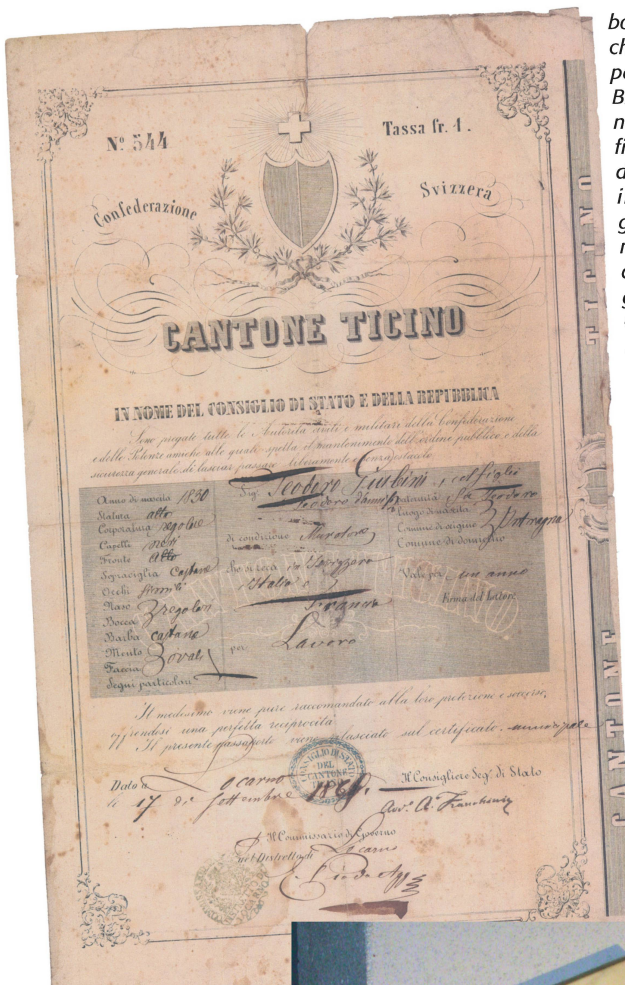 Nº 544
Tassa fr. 1.
Confederazione
Svizzera
CANTONE TICINO
IN NOME DEL CONSIGLIO DI STATO E DELLA REPUBBLICA
Sono pregate tutte le Autorità civili e militari della Confederazione
e delle Potenze amiche alle quali spetta il mantenimento dell'ordine pubblico e della
sicurezza generale di lasciar passare liberamente e senza ostacolo
Anno di nascita 1830
Statura alto
Corporatura regolare
Capelli neri
Fronte alto
Sopraciglia castane
Occhi simili
Naso
Bocca regolari
Barba castana
Mento
Faccia ovale
Segni particolari
Sig. Teodoro col figli
Teodoro d'anni
di condizione Muratore
che si reca in Svizzera
Italia e
Francia
per Lavoro
Paternità Teodoro
Luogo di nascita
Comune di origine Intragna
Comune di domicilio
Vale per un anno
Firma del Latore
Il medesimo viene pure raccomandato alla loro protezione e soccorso,
una perfetta reciprocità
Il presente passaporto viene rilasciato sul certificato municipale
Dato a Locarno
li 17 di Settembre
CONSIGLIO DI STATO
DEL
CANTONE
TICINO
Il Consigliere Seg.º di Stato
Avv. A. Franchini
Il Commissario di Governo
nel Distretto di Locarno
TICINO
CANTONE